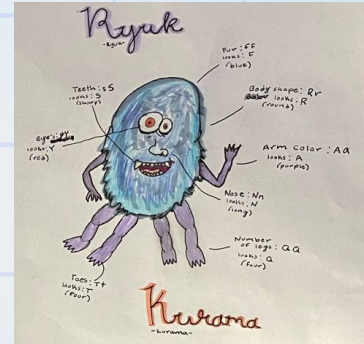 Ryuk
-Ryuk-
Fur: FF
looks: F
(blue)
Teeth: sS
looks: S
(sharp)
Body shape: Rr
looks: R
(round)
eyes: YY
looks: Y
(red)
Arm color: Aa
looks: A
(purple)
Nose: Nn
looks: N
(long)
Number
of legs: QQ
looks: Q
(four)
Toes: Tt
looks: T
(four)
Kurama
-kurama-